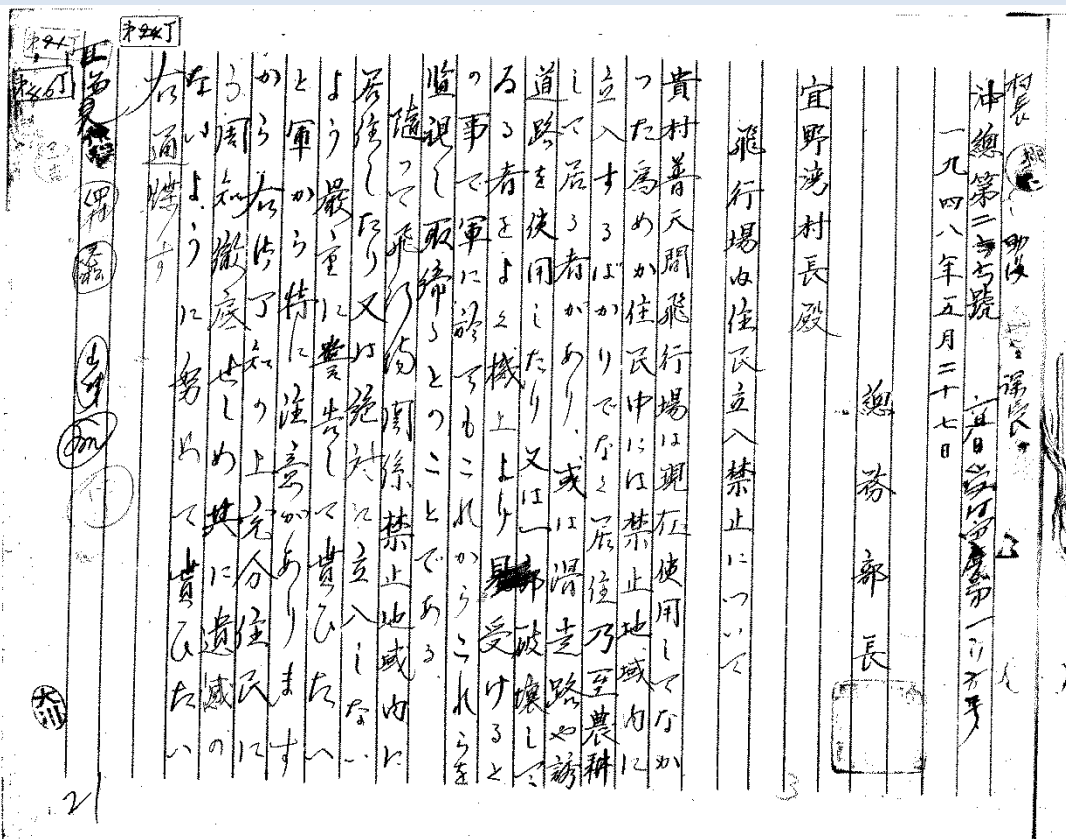 村長
助役
課長
沖總第二七号號
一九四八年五月二十七日
總務部長
宜野湾村長殿
飛行場内住民立入禁止について
貴村普天間飛行場は現在使用してなか
った為めか住民中には禁止地域内に
立入するばかりでなく居住乃至農耕
して居る者があり、或は滑走路や誘
道路を使用したり又は一部破壊して
ゐる者をよく機上より見受けると
の事で軍に於てもこれからこれらを
監視し取締るとのことである
随って飛行場関係禁止地域内に
居住したり又は絶対に立入しない
よう厳重に警告して貰ひたい
と軍から特に注意がありますす
から右御了知の上充分住民に
る周知徹底せしめ共に遺憾の
ないように努めて貰ひたい
右通牒す
大川
21
3
才24丁